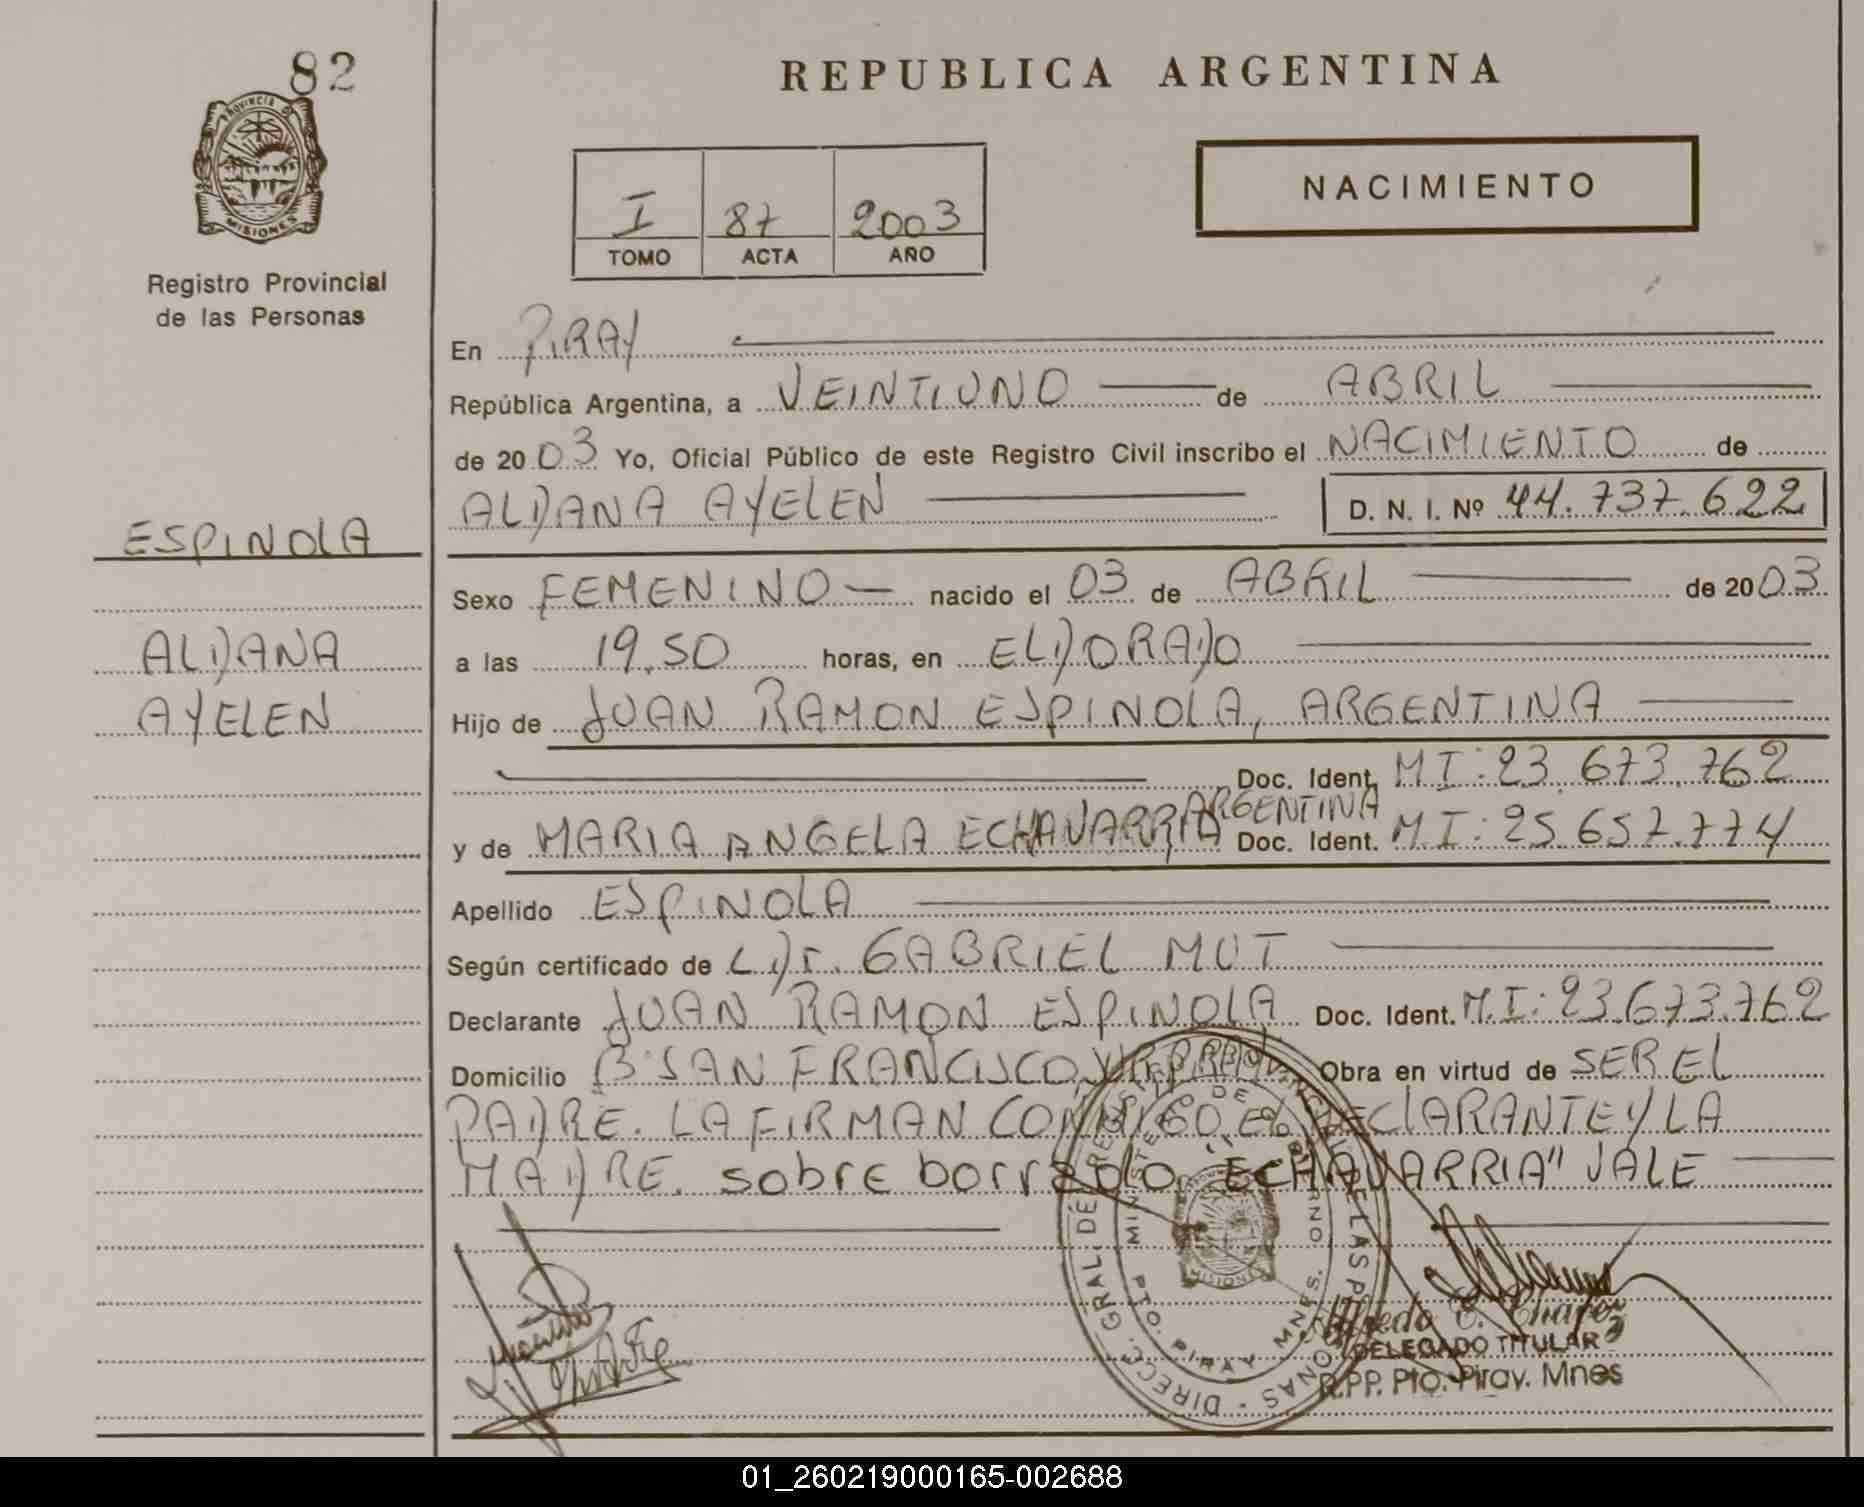 82
PROVINCIA DE
MISIONES
Registro Provincial
de las Personas
ESPINOLA
ALDANA
AYELEN
REPUBLICA ARGENTINA
I 87 2003
TOMO ACTA AÑO
NACIMIENTO
En PIRAY
República Argentina, a VEINTIUNO de ABRIL
de 2003 Yo, Oficial Público de este Registro Civil inscribo el NACIMIENTO de
ALDANA AYELEN D. N. I. Nº 44.737.622
Sexo FEMENINO nacido el 03 de ABRIL de 2003
a las 19.50 horas, en ELDORADO
Hijo de JUAN RAMON ESPINOLA, ARGENTINA
Doc. Ident. M I: 23 673.762
ARGENTINA
y de MARIA ANGELA ECHAVARRIA Doc. Ident. M.I: 25.657.774
Apellido ESPINOLA
Según certificado de GABRIEL MUT
Declarante JUAN RAMON ESPINOLA Doc. Ident. M.I: 23.673.762
Domicilio Bº SAN FRANCISCO Obra en virtud de SER EL
PADRE. LA FIRMAN CONMIGO EL DECLARANTE Y LA
MADRE. sobre borrado "ECHAVARRIA" VALE
DIREC. GRAL. DE REGISTRO PROVINCIAL DE LAS PERSONAS
MINISTERIO DE GOBIERNO
PTO. PIRAY MNES.
MISIONES
Alfredo C. Chavez
DELEGADO TITULAR
R.P.P. Pto. Piray. Mnes
01_260219000165-002688